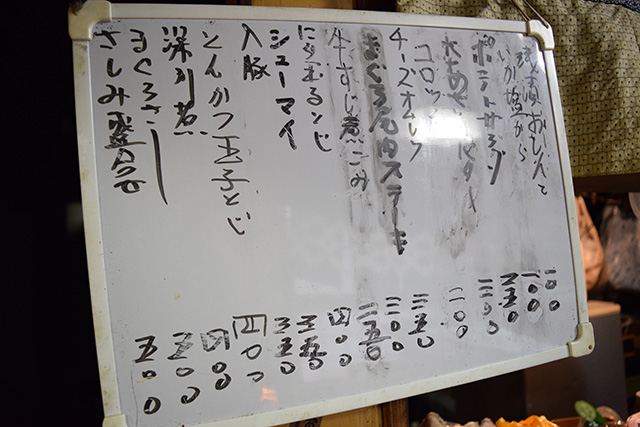 おしんこ 一〇〇
いか塩から 一〇〇
ポテトサラダ 三五〇
大あさりバタ 三〇〇
コロッケ 二〇〇
チーズオムレツ 三五〇
まぐろ尾肉ステーキ 三〇〇
牛すじ煮こみ 二五〇
にらたまとじ 四〇〇
シューマイ 三五〇
入豚 三五〇
とんかつ玉子とじ 四〇〇
深川煮 四〇〇
まぐろさし 五〇〇
さしみ盛合せ 五〇〇